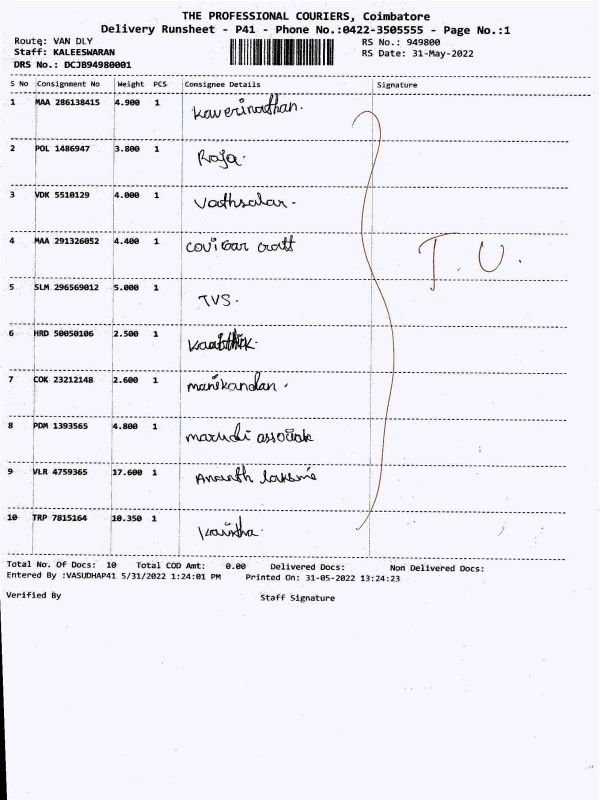 THE PROFESSIONAL COURIERS, Coimbatore
Delivery Runsheet - P41 - Phone No.:0422-3505555 - Page No.:1
Route: VAN DLY RS No.: 949800
Staff: KALEESWARAN RS Date: 31-May-2022
DRS No.: DCJB94980001
S No Consignment No Weight PCS Consignee Details Signature
1 MAA 286138415 4.900 1 Kaverinathan.
2 POL 1486947 3.800 1 Raja.
3 VDK 5510129 4.000 1 Vathsalar.
4 MAA 291326052 4.400 1 covi Gar craft T.U.
5 SLM 296569012 5.000 1 TVS.
6 HRD 50050106 2.500 1
7 COK 23212148 2.600 1 manikandan.
8 PDM 1393565 4.800 1
9 VLR 4759365 17.600 1 Ananth
10 TRP 7815164 10.350 1
Total No. Of Docs: 10 Total COD Amt: 0.00 Delivered Docs: Non Delivered Docs:
Entered By :VASUDHAP41 5/31/2022 1:24:01 PM Printed On: 31-05-2022 13:24:23
Verified By Staff Signature